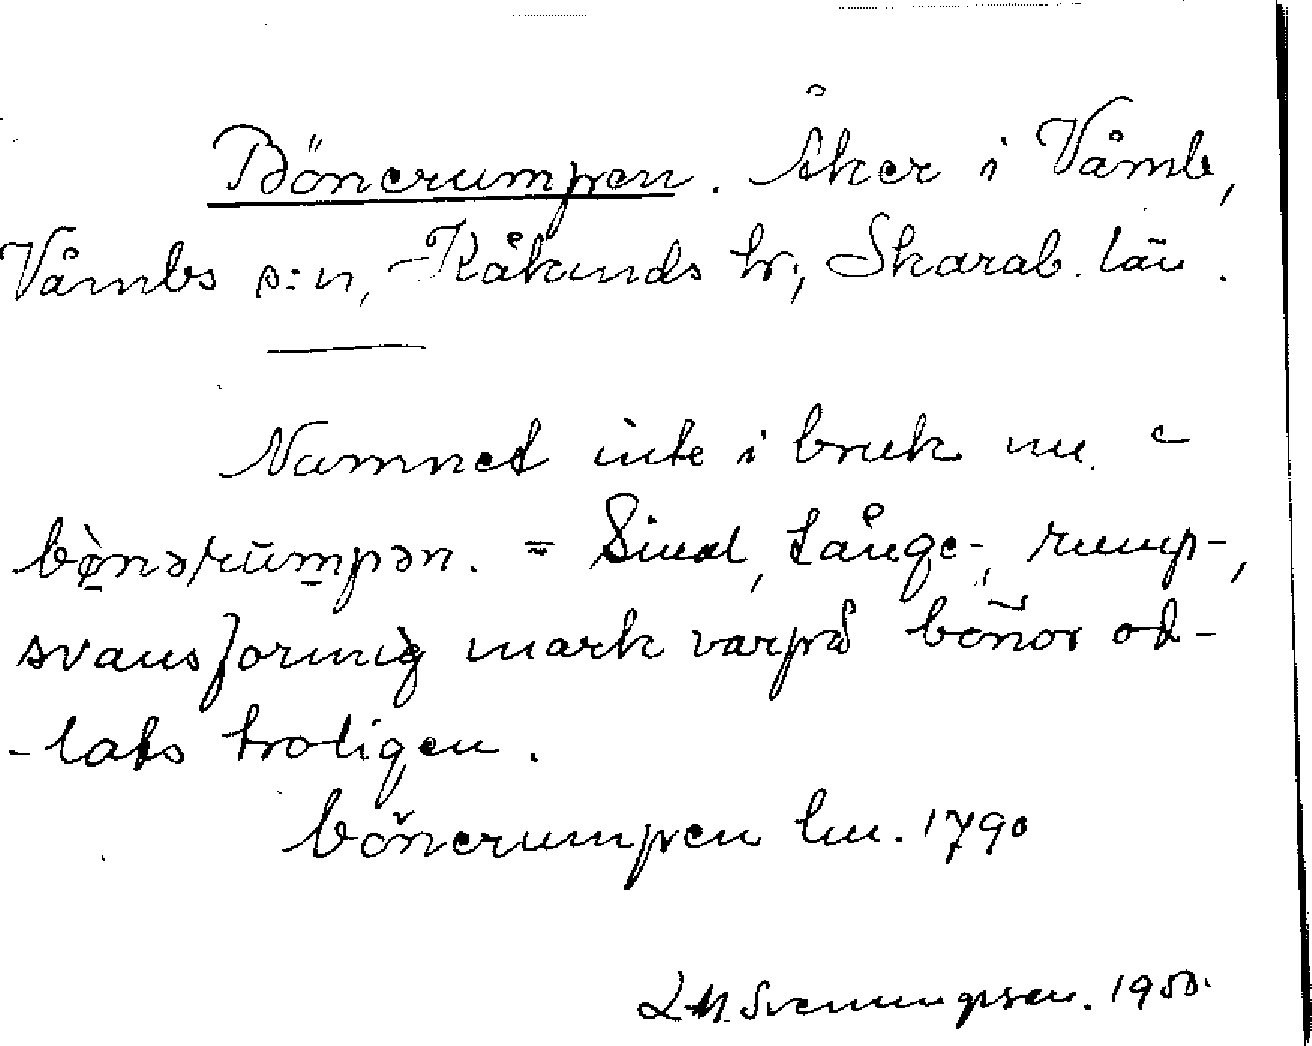 Bönerumpen. Åker i Våmb,
Våmbs s:n, Kåkinds hr, Skarab. län.
Namnet inte i bruk nu. -
bö̀nərūmpən. = Smal, långe-, rump-,
svansformig mark varpå bönor od-
-lats troligen.
Bönerumpen lm. 1790
L.M. Svenungsson. 1950.